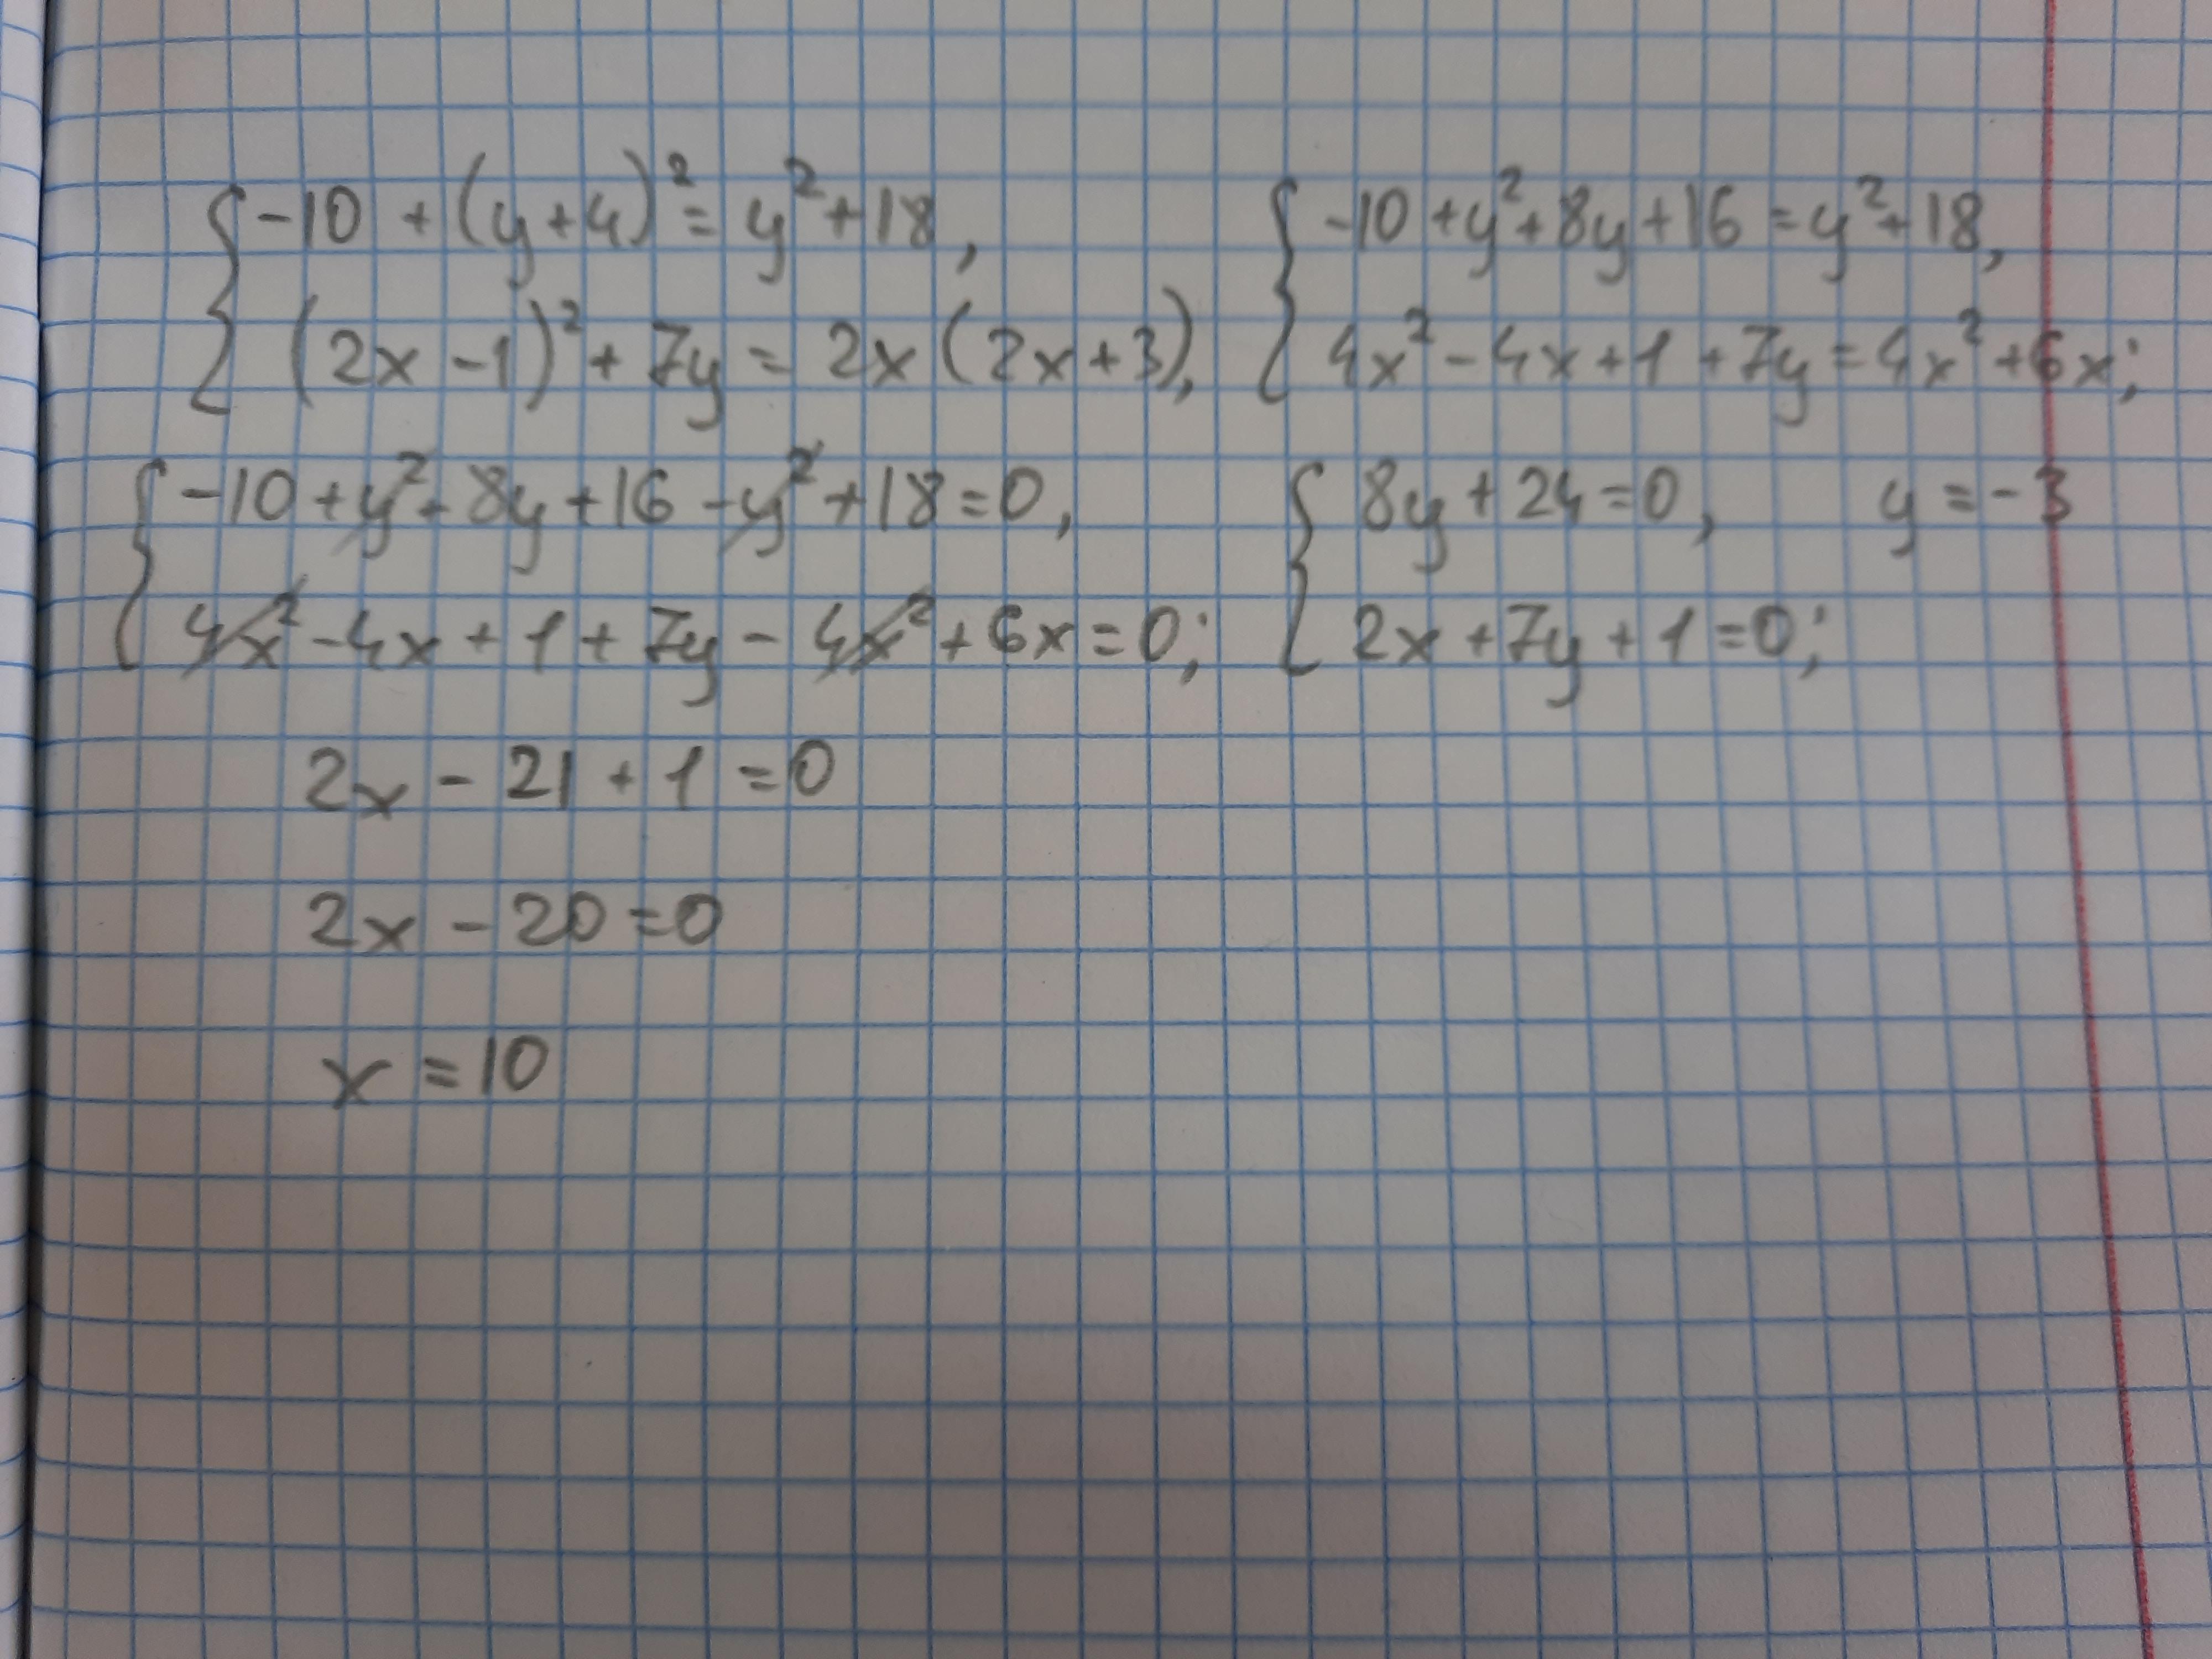 { -10 + (y+4)² = y² + 18,
{ (2x - 1)² + 7y = 2x (2x + 3),
{ -10 + y² + 8y + 16 = y² + 18,
{ 4x² - 4x + 1 + 7y = 4x² + 6x;
{ -10 + y² + 8y + 16 - y² + 18 = 0,
{ 4x² - 4x + 1 + 7y - 4x² + 6x = 0;
{ 8y + 24 = 0, y = -3
{ 2x + 7y + 1 = 0;
2x - 21 + 1 = 0
2x - 20 = 0
x = 10